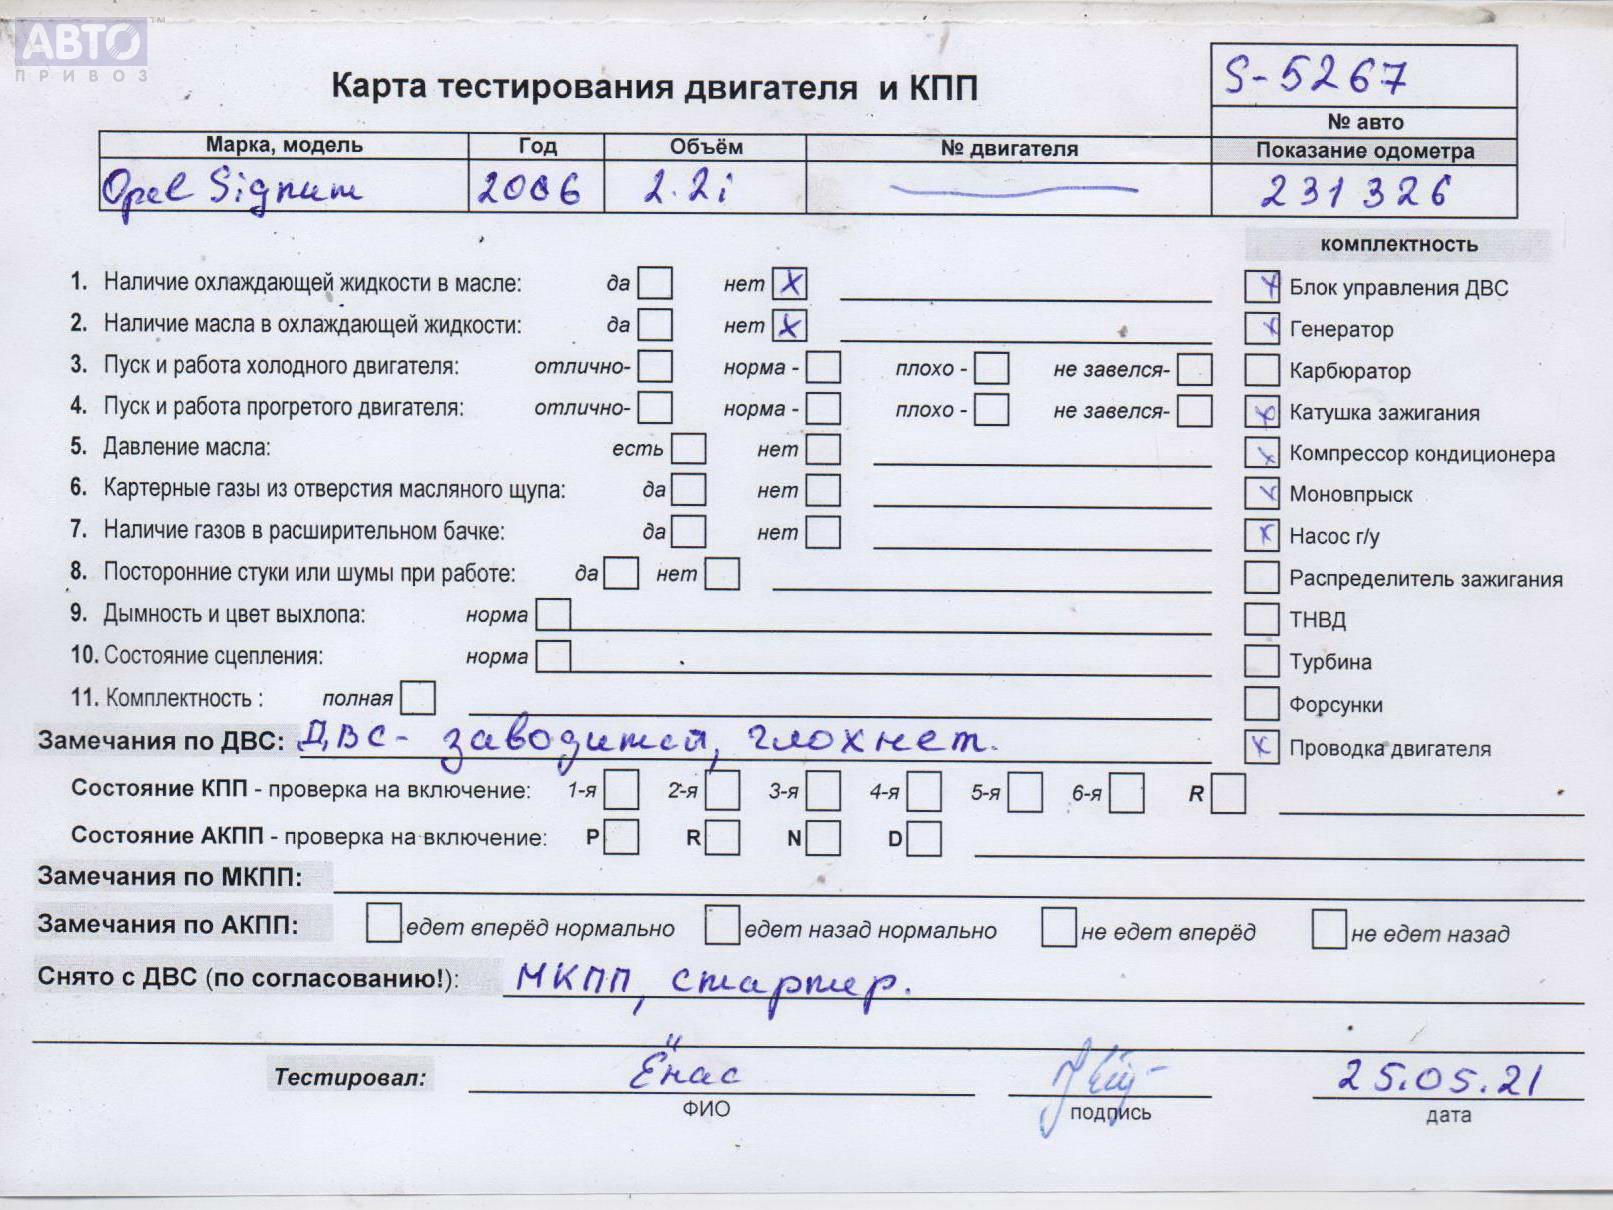 АВТО™
ПРИВОЗ
S-5267
Карта тестирования двигателя и КПП
№ авто
Марка, модель Год Объём № двигателя Показание одометра
Opel Signum 2006 2.2i 231326
комплектность
1. Наличие охлаждающей жидкости в масле: да нет X Блок управления ДВС
2. Наличие масла в охлаждающей жидкости: да нет X Генератор
3. Пуск и работа холодного двигателя: отлично- норма - плохо - не завелся- Карбюратор
4. Пуск и работа прогретого двигателя: отлично- норма - плохо - не завелся- Катушка зажигания
5. Давление масла: есть нет Компрессор кондиционера
6. Картерные газы из отверстия масляного щупа: да нет Моновпрыск
7. Наличие газов в расширительном бачке: да нет Насос г/у
8. Посторонние стуки или шумы при работе: да нет Распределитель зажигания
9. Дымность и цвет выхлопа: норма ТНВД
10. Состояние сцепления: норма Турбина
11. Комплектность : полная Форсунки
Замечания по ДВС: ДВС- заводится, глохнет. Проводка двигателя
Состояние КПП - проверка на включение: 1-я 2-я 3-я 4-я 5-я 6-я R
Состояние АКПП - проверка на включение: P R N D
Замечания по МКПП:
Замечания по АКПП: едет вперёд нормально едет назад нормально не едет вперёд не едет назад
Снято с ДВС (по согласованию!): МКПП, стартер.
Тестировал: Ёнас 25.05.21
ФИО подпись дата